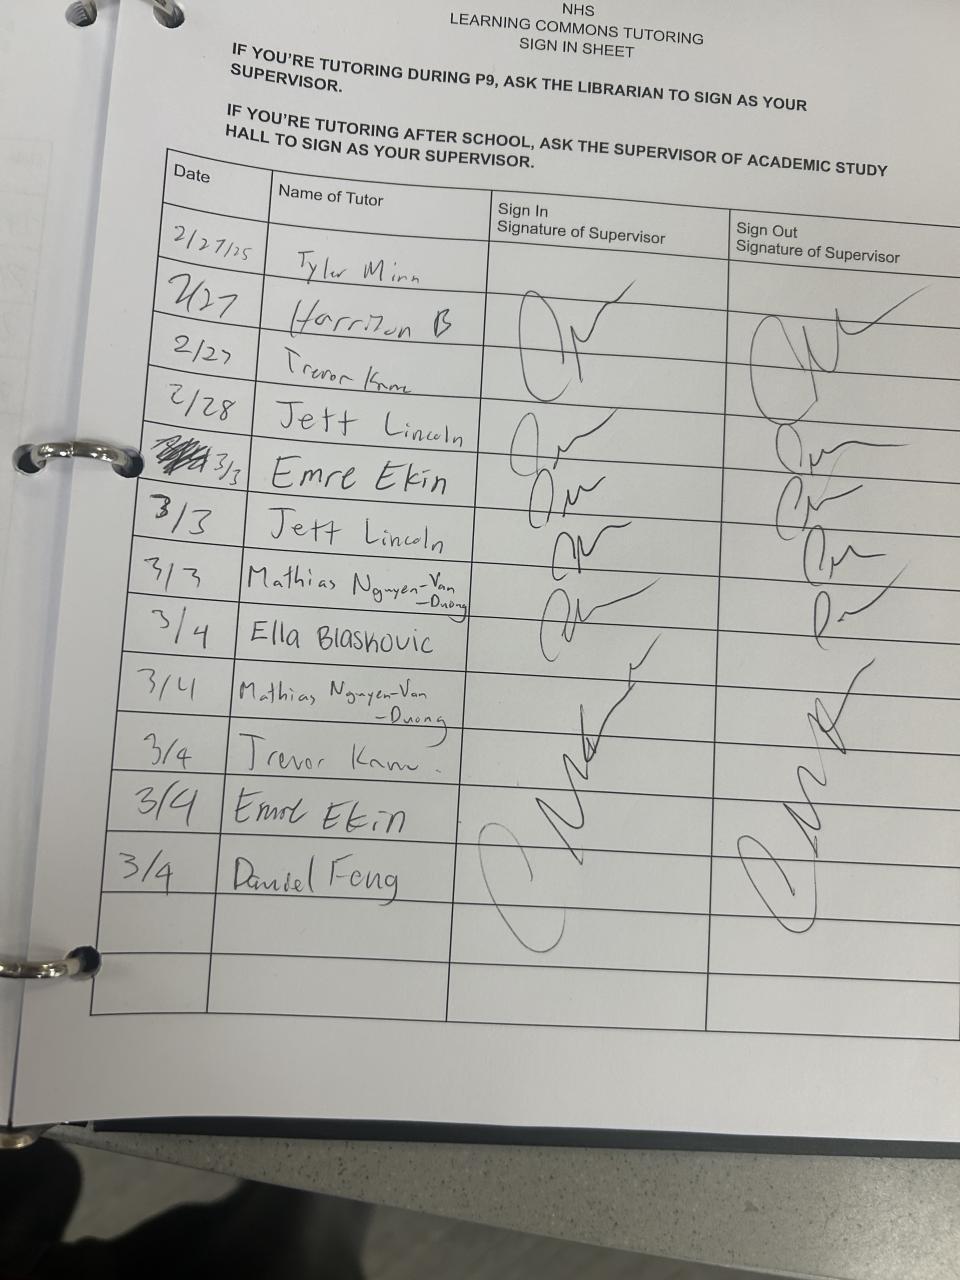 NHS
LEARNING COMMONS TUTORING
SIGN IN SHEET
IF YOU'RE TUTORING DURING P9, ASK THE LIBRARIAN TO SIGN AS YOUR
SUPERVISOR.
IF YOU'RE TUTORING AFTER SCHOOL, ASK THE SUPERVISOR OF ACADEMIC STUDY
HALL TO SIGN AS YOUR SUPERVISOR.
Date Name of Tutor Sign In Sign Out
Signature of Supervisor Signature of Supervisor
2/27/25 Tyler Minn
2/27 Harrison B
2/27 Trevor
2/28 Jett Lincoln
3/3 Emre Ekin
3/3 Jett Lincoln
3/3 Mathias Nguyen-Van
-Duong
3/4 Ella Blaskovic
3/4 Mathias Nguyen-Van
-Duong
3/4 Trevor
3/4 Emre Ekin
3/4 Daniel Feng